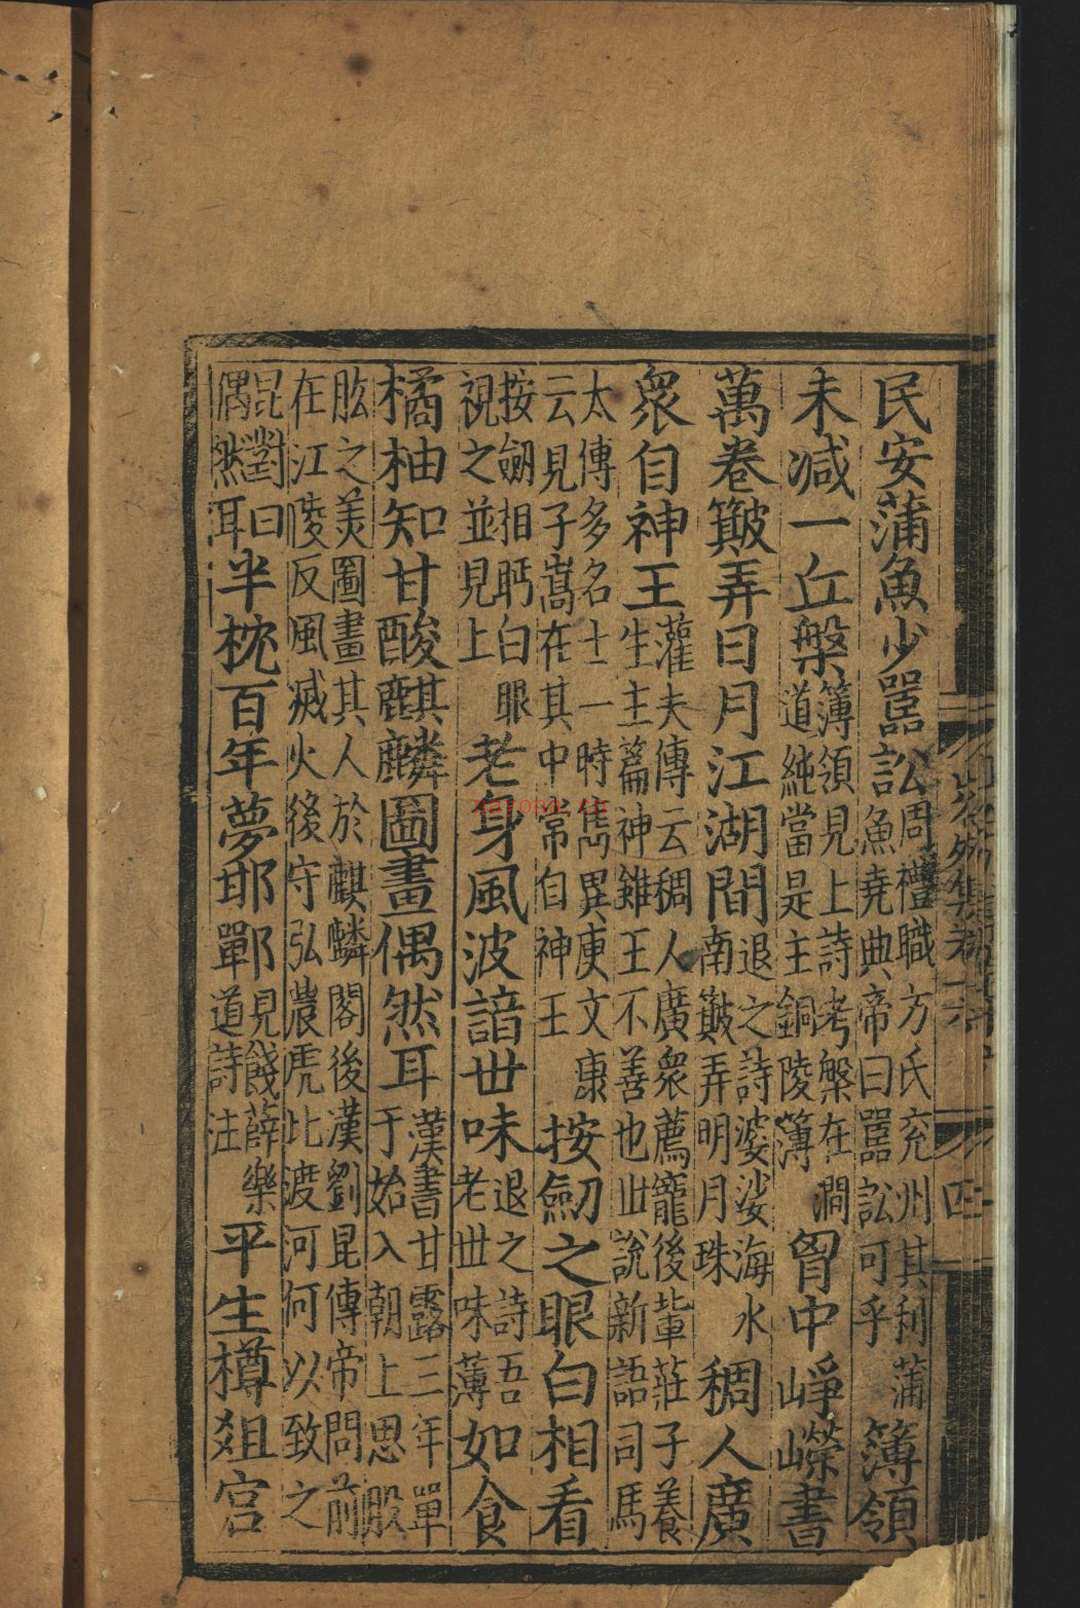 民安蒲魚少嚚訟周禮職方氏兖州其利蒲魚堯典帝曰嚚訟可乎簿領
未减一丘槃簿領見上詩考槃在澗道純當是主銅陵簿胷中崢嶸書
萬卷簸弄日月江湖間退之詩婆娑海水南簸弄明月珠稠人廣
衆自神王灌夫傳云稠人廣衆薦寵後軰莊子養生主篇神雖王不善也世說新語司馬
太傅多名士一時雋異庾文康云見子嵩在其中常自神王按劒之眼白相看
按劒相眄白眼視之並見上老身風波諳世味退之詩吾老世味薄如食
橘柚知甘酸麒麟圖畫偶然耳漢書甘露三年單于始入朝上思股
肱之美圖畫其人於麒麟閣後漢劉昆傳帝問前在江陵反風滅火後守弘農虎比渡河何以致之
昆對曰偶然耳半枕百年夢邯鄲見餞薛樂道詩注平生樽俎宮
四